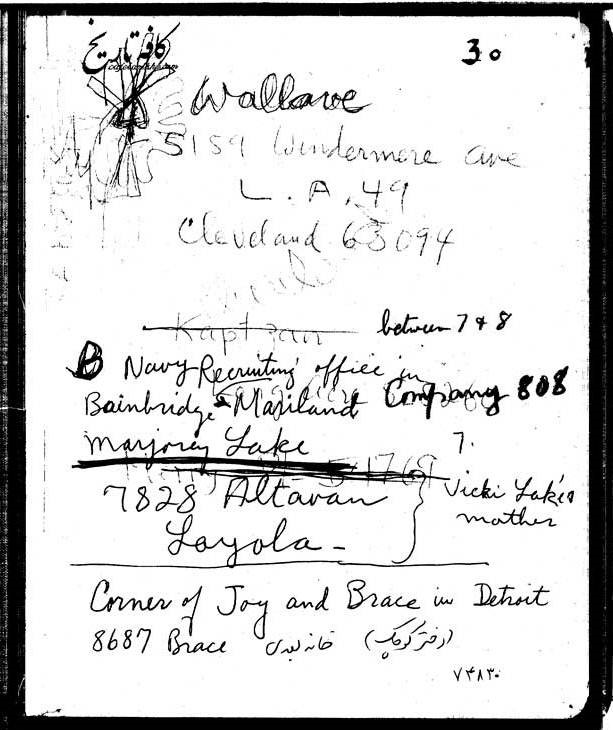 کافه تاریخ
30
Wallave
5159 Windermere ave
L.A, 49
Cleveland 63094
Kaptzan
between 7 & 8
B Navy Recruiting office in
Bainbridge Mariland Company 808
Marjorey Lake
7.
7828 Altavan
Vicki Lake's
mother
Loyola -
Corner of Joy and Brace in Detroit
8687 Brace خانه لیدی (دختر کوچک)
۷۴۸۳۰